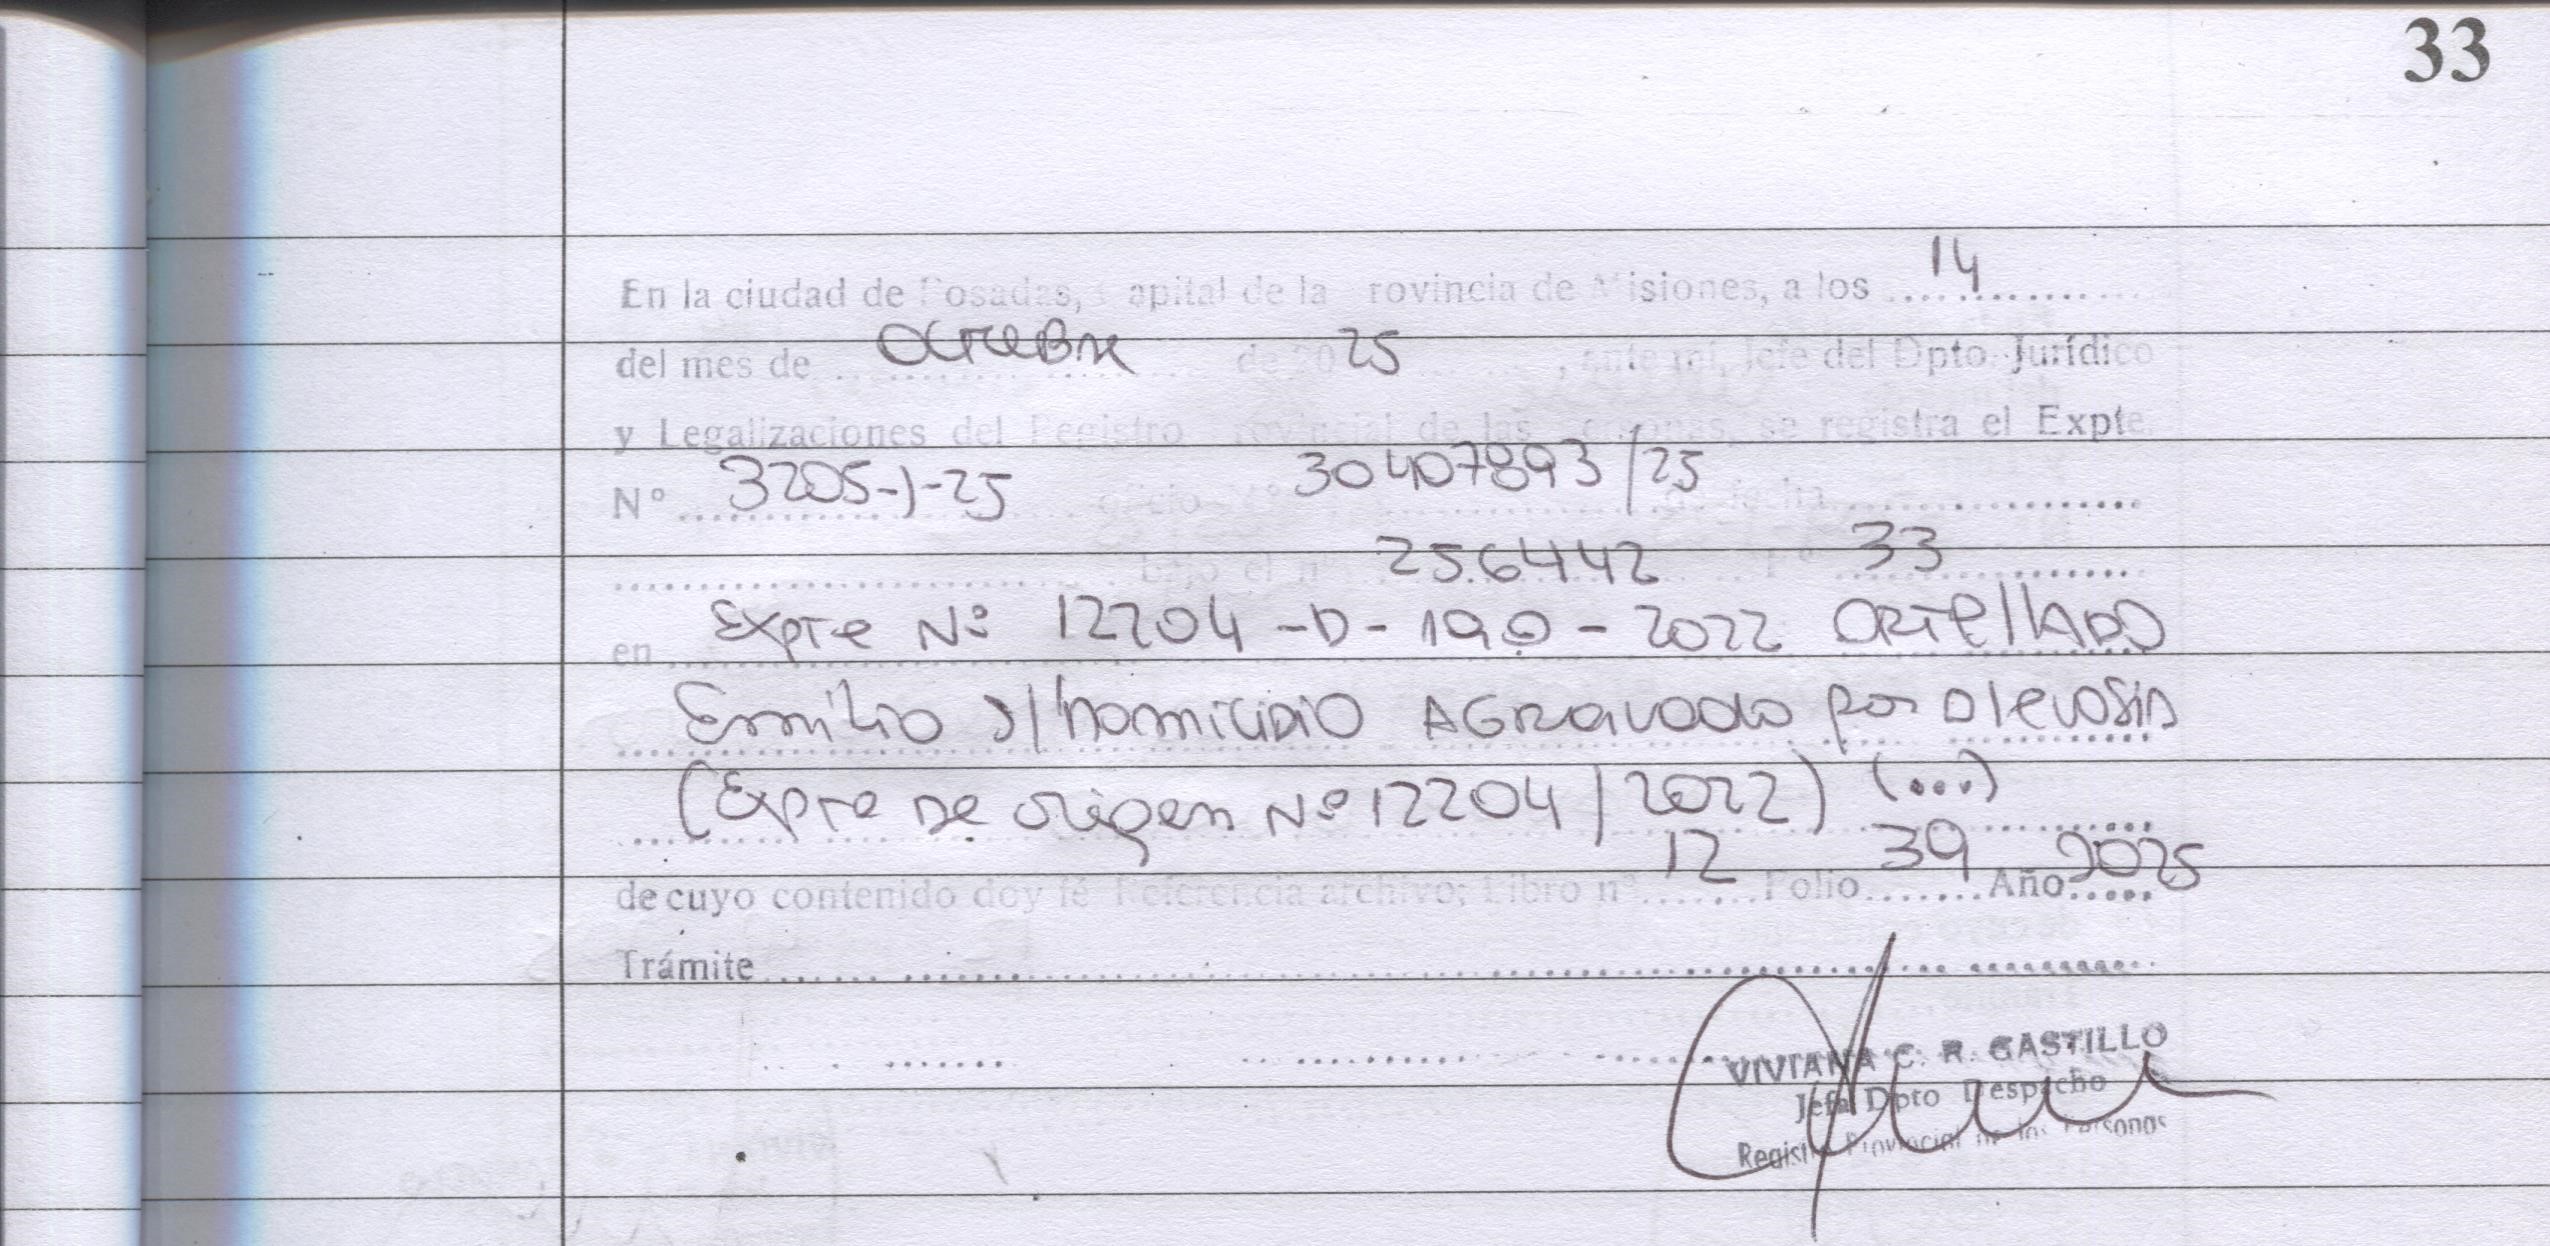 33
En la ciudad de Posadas, Capital de la Provincia de Misiones, a los 14
del mes de Octubre de 2025, ante mi, Jefe del Dpto. Jurídico
y Legalizaciones del Registro Provincial de las Personas, se registra el Expte.
N° 3205-J-25 oficio n° 30407893/25 de fecha
bajo el n° 256442 F° 33
en Expte Nº 12204-D-190-2022 ORTELLADO
Emilio s/homicidio AGravado por alevosia
(Expte de origen Nº 12204/2022) (...)
de cuyo contenido doy fé Referencia archivo; Libro n° 12 Folio 39 Año 2025
Trámite
VIVIANA C. R. CASTILLO
Jefa Dpto Despacho
Registro Provincial de las Personas